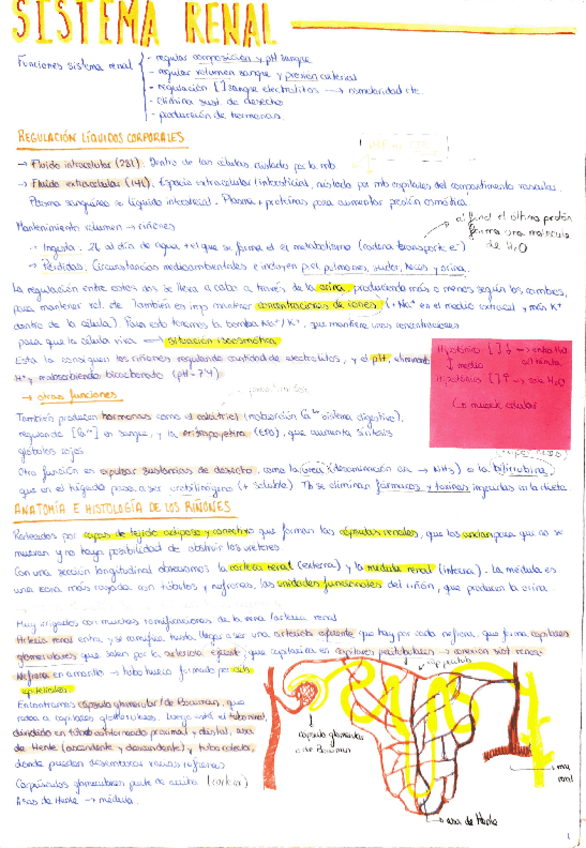 SISTEMA RENAL
Funciones sistema renal
- regular composición y pH sangre
- regular volumen sangre y presión arterial
- regulación [ ] sangre electrolitos → osmolaridad etc.
- elimina sust. de desecho
- producción de hormonas.
REGULACIÓN LÍQUIDOS CORPORALES
→ Fluido intracelular (28l). Dentro de las células, aislado por la mb
→ Fluido extracelular (14l). Espacio extracelular/intersticial, aislado por mb capilares del compartimento vascular.
Plasma sanguíneo ≈ líquido intersticial. Plasma + proteínas para aumentar presión osmótica.
Mantenimiento volumen → riñones
al final el último protón
forma una molécula
de H2O
· Ingesta. 2l al día de agua + el que se forma el el metabolismo (cadena transporte e-)
· Pérdidas. Circunstancias medioambientales e incluyen piel, pulmones, sudor, heces y orina.
La regulación entre estos dos se lleva a cabo a través de la orina, produciendo más o menos según los cambios,
para mantener vol. de También es imp mantener concentraciones de iones (+Na+ en el medio extracel y más K+
dentro de la célula). Para esto tenemos la bomba Na+/K+, que mantiene unas concentraciones
para que la célula viva → situación isoosmótica
Esta la consiguen los riñones regulando cantidad de electrolitos, y el pH, eliminando
H+ y reabsorbiendo bicarbonato (pH = 7'4)
Hipotónico [ ] ↓ → entra H2O
↕ medio
Hipertónico [ ] ↑ → sale H2O
↳ muerte celular
→ otras funciones
También producen hormonas como el calcitriol (reabsorción Ca2+ sistema digestivo),
regulando [Ca2+] en sangre, y la eritropoyetina (EPO), que aumenta síntesis
glóbulos rojos.
Otra función es expulsar sustancias de desecho, como la urea (desaminación aa → NH3) o la bilirrubina,
que en el hígado pasa a ser urobilinógeno (+ soluble). Tb se eliminan fármacos y toxinas ingeridas en la dieta
ANATOMÍA E HISTOLOGÍA DE LOS RIÑONES
Rodeados por capas de tejido adiposo y conectivo que forman las cápsulas renales, que los anclan para que no se
muevan y no haya posibilidad de obstruir los uréteres
Con una sección longitudinal observamos la corteza renal (externa) y la médula renal (interna). La médula es
una zona más rayada con túbulos y nefronas, las unidades funcionales del riñón, que producen la orina.
Muy irrigados con muchas ramificaciones de la vena/arteria renal
Arteria renal entra y se ramifica hasta llegar a ser una arteriola aferente que hay por cada nefrona, que forma capilares
glomerulares que salen por la arteriola eferente, que capilariza en capilares peritubulares → conexión sist venoso
Nefrona en amarillo → tubo hueco formado por céls
epiteliales
Encontramos cápsula glomerular/de Bowman, que
rodea a capilares glomerulares. Luego está el túbulo renal,
dividido en túbulo contorneado proximal y distal, asa
de Henle (ascendente y descendente) y túbulo colector,
donde pueden desembocar varias nefronas
Corpúsculos glomerulares parte de arriba (cortex)
Asas de Henle → médula.
cap peritub
cápsula glomerular
o de Bowman
asa de Henle
vena
renal
1